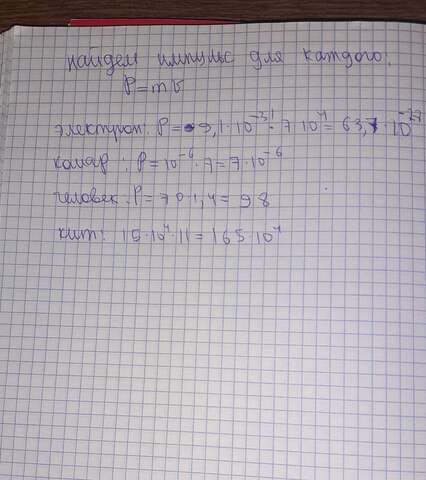 найдем импульс для каждого.
P=mv
электрон: P=9,1·10⁻³¹·7·10⁴=63,7·10⁻²⁷
комар: P=10⁻⁶·7=7·10⁻⁶
человек: P=70·1,4=98
кит: 15·10⁴·11=165·10⁴